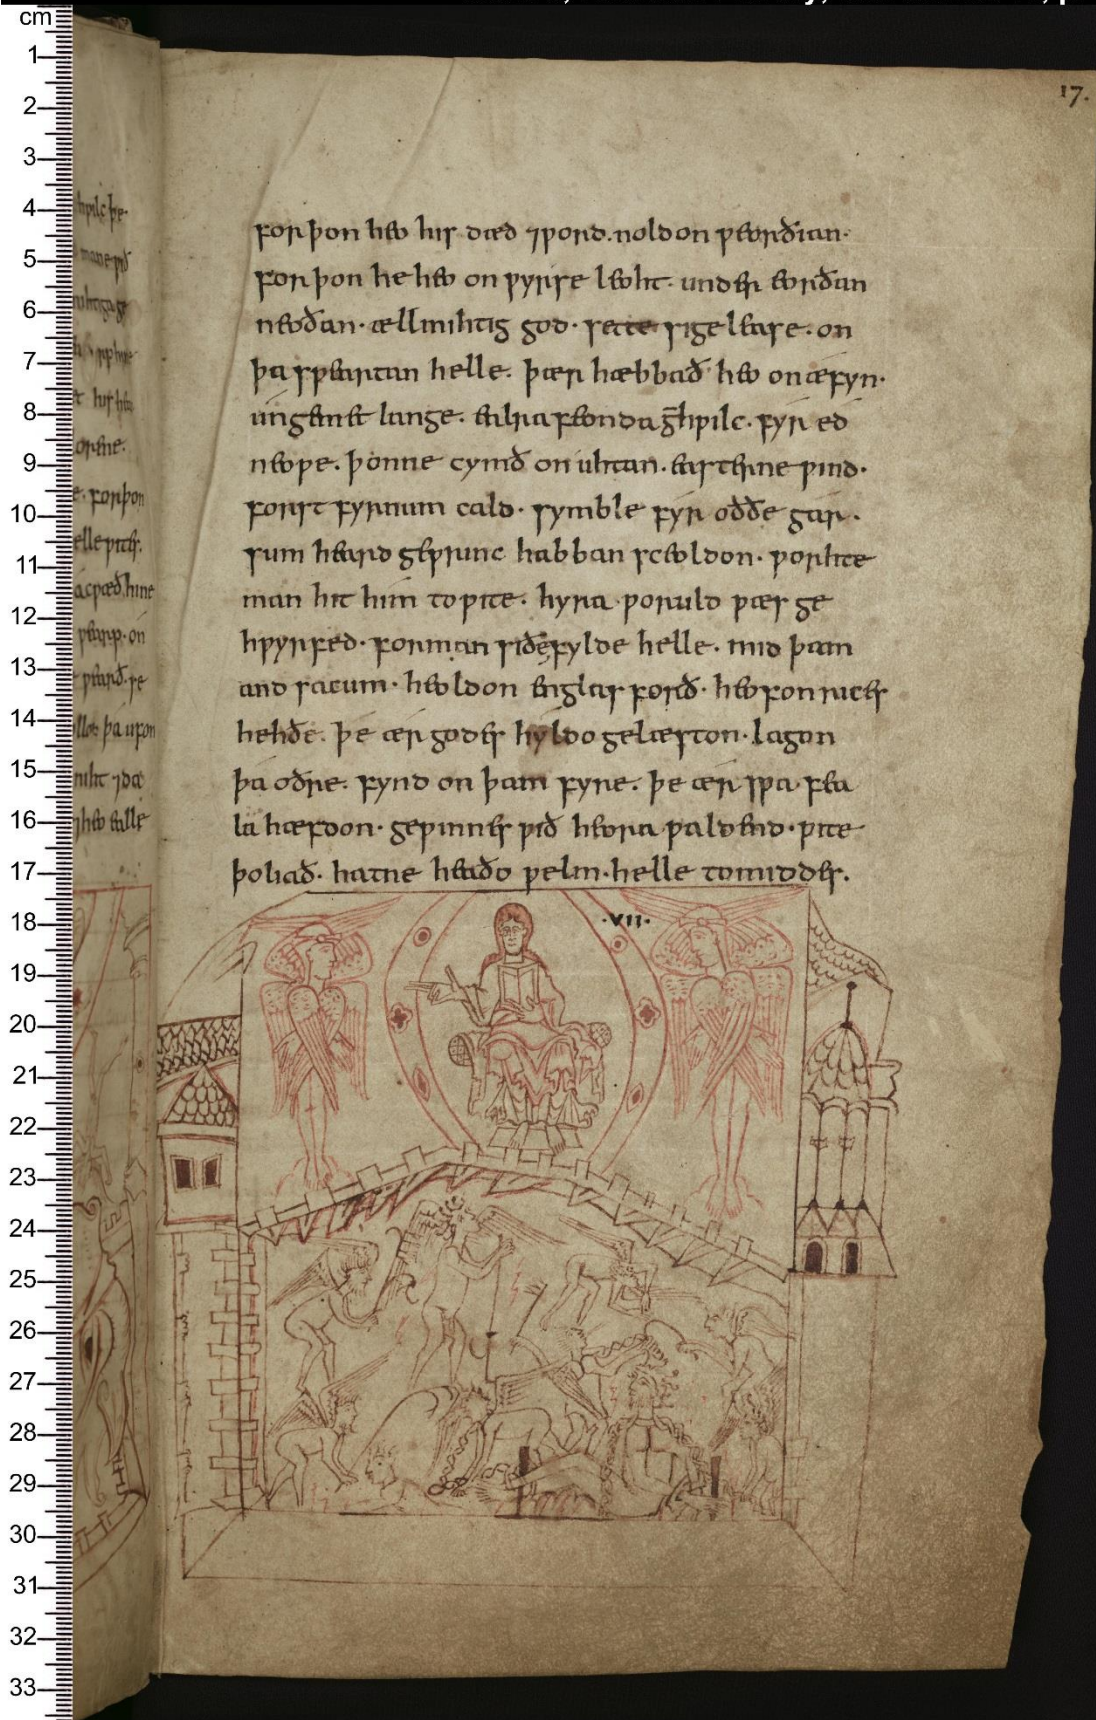 cm
1
2
3
4
5
6
7
8
9
10
11
12
13
14
15
16
17
18
19
20
21
22
23
24
25
26
27
28
29
30
31
32
33
17.
forþon heo his dæd ⁊ ƿord. noldon ƿeorðian·
forþon he heo on ƿyrse leoht· under eorðan
neoðan· ællmihtig god· sette sigelease· on
þa sƿeartan helle. þær hæbbað heo on æfyn·
ungemet lange. ealra feonda gehƿilc. fyr ed
neoƿe. þonne cymð on uhtan. easterne ƿind·
forst fyrnum cald· symble fyr oððe gar·
sum heard geƿrinc habban sceoldon· ƿorhte
man hit him to ƿite. hyra ƿoruld ƿæs ge
hƿyrfed· forman siðe fylde helle. mid þam
and sacum· heoldon englas forð· heofon rices
hehðe. þe ær godes hyldo gelæston· lagon
þa oðre. fynd on þam fyre. þe ær sƿa fea
la hæfdon· geƿinnes ƿið heora ƿaldend· ƿite
þoliað· hatne heaðo ƿelm· helle tomiddes.
·VII·